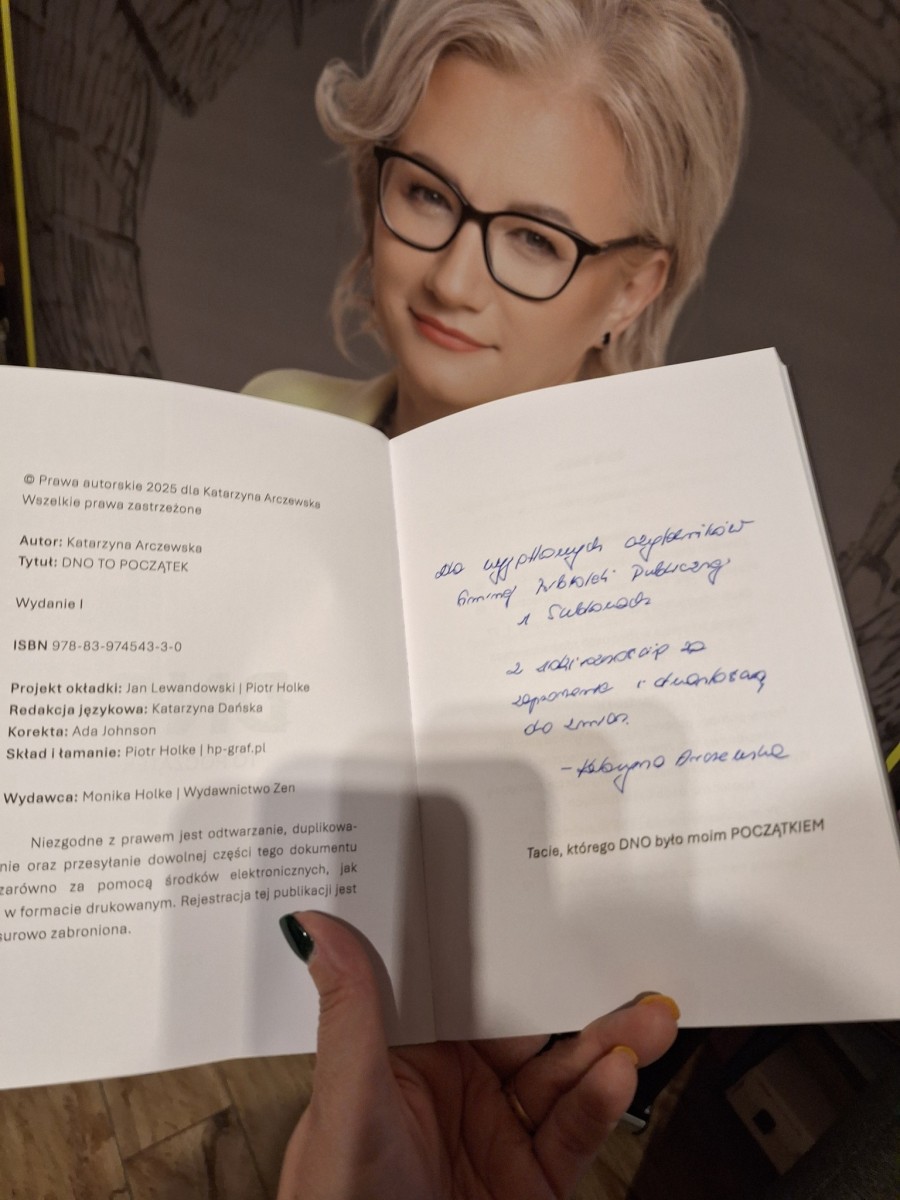 © Prawa autorskie 2025 dla Katarzyna Arczewska
Wszelkie prawa zastrzeżone
Autor: Katarzyna Arczewska
Tytuł: DNO TO POCZĄTEK
Wydanie I
ISBN 978-83-974543-3-0
Projekt okładki: Jan Lewandowski | Piotr Holke
Redakcja językowa: Katarzyna Dańska
Korekta: Ada Johnson
Skład i łamanie: Piotr Holke | hp-graf.pl
Wydawca: Monika Holke | Wydawnictwo Zen
Niezgodne z prawem jest odtwarzanie, duplikowa-
nie oraz przesyłanie dowolnej części tego dokumentu
zarówno za pomocą środków elektronicznych, jak
w formacie drukowanym. Rejestracja tej publikacji jest
surowo zabroniona.
dla wyjątkowych czytelników
Gminnej Biblioteki Publicznej
w
z wdzięcznością za
zaproszenie i
do zmian.
- Katarzyna Arczewska
Tacie, którego DNO było moim POCZĄTKIEM